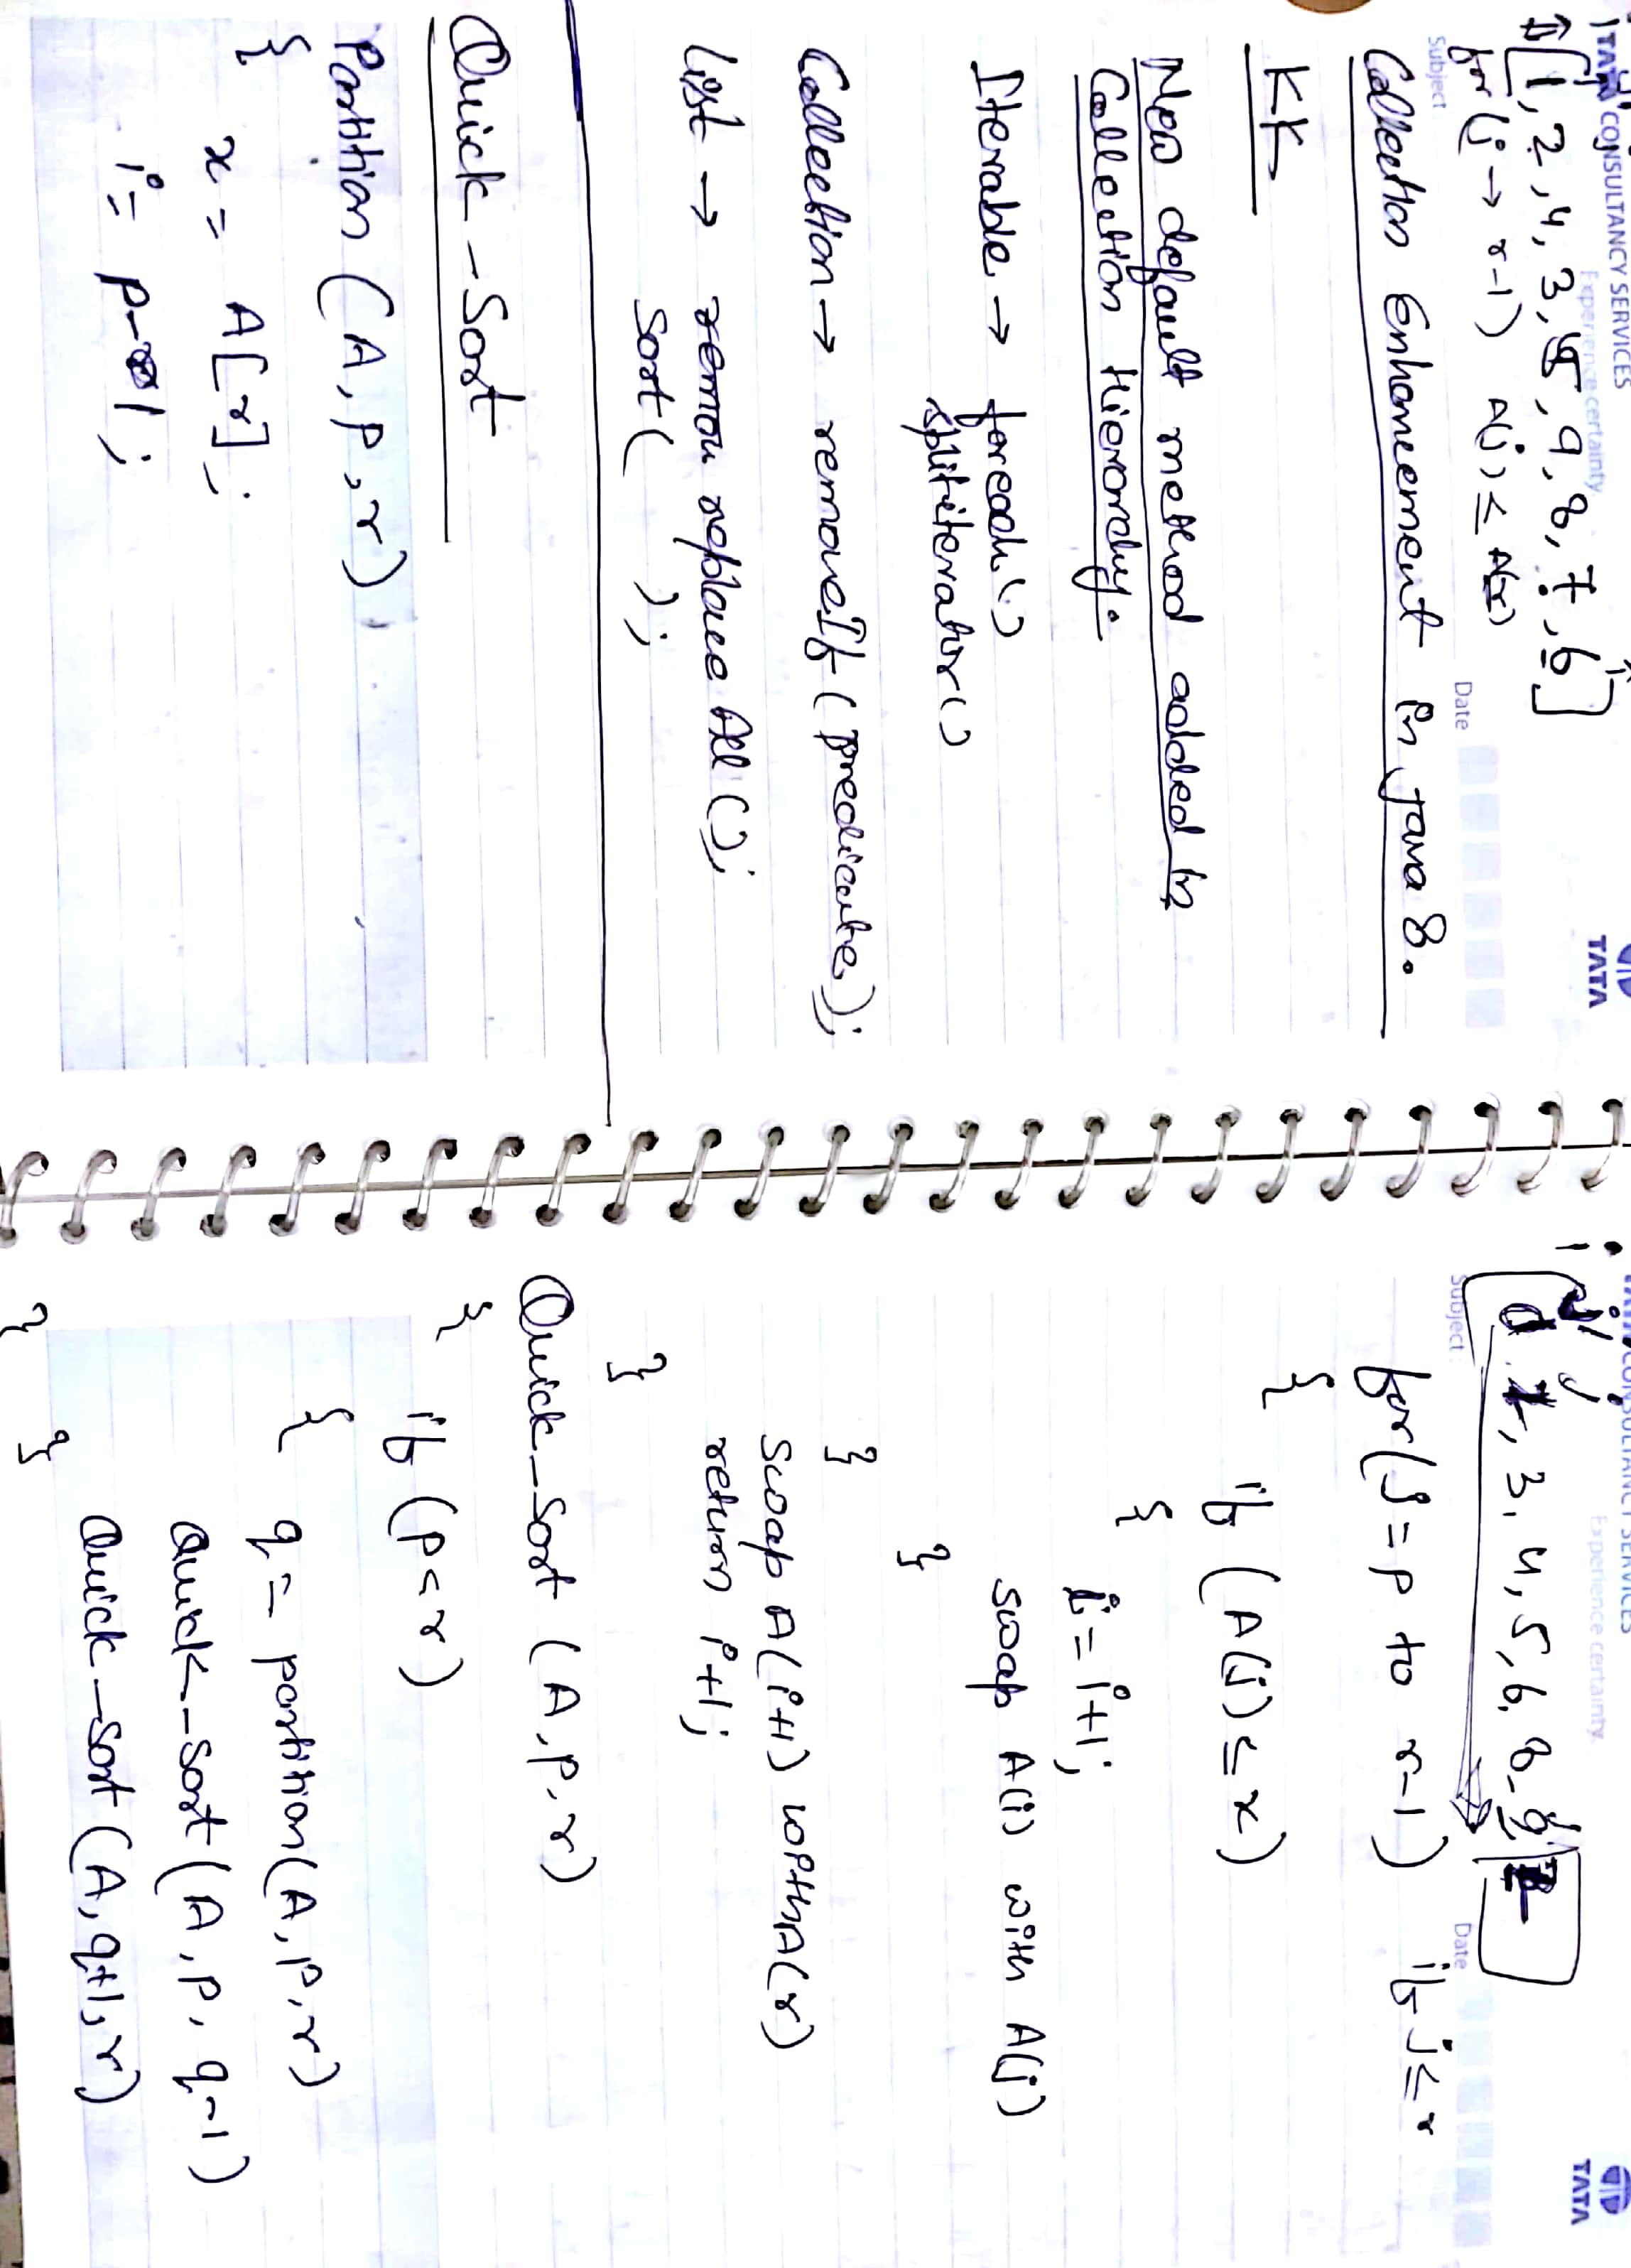 TATA CONSULTANCY SERVICES
Experience certainty
TATA
[1, 2, 4, 3, 5, 9, 8, 7, 6]
for (j → r-1) A(j) ≤ A(r)
Subject
Date
Collection Enhancement in Java 8.
KK
New default method added in
Collection Hierarchy.
Iterable → foreach()
spliterator()
Collection → removeIf (predicate);
List → replace All ();
Sort( );
Quick-Sort
Partition (A, p, r)
{
x = A[r];
i = p-1;
TATA CONSULTANCY SERVICES
Experience certainty
TATA
3, 4, 5, 6, 8, 9
Subject :
Date
for (j = p to r-1) if j ≤ r
{
if (A(j) ≤ x)
{
i = i+1;
swap A(i) with A(j)
}
}
swap A(i+1) with A(r)
return i+1;
}
Quick-Sort (A, p, r)
{
if (p < r)
{
q = partition(A, p, r)
Quick-Sort (A, p, q-1)
Quick-Sort (A, q+1, r)
}
}